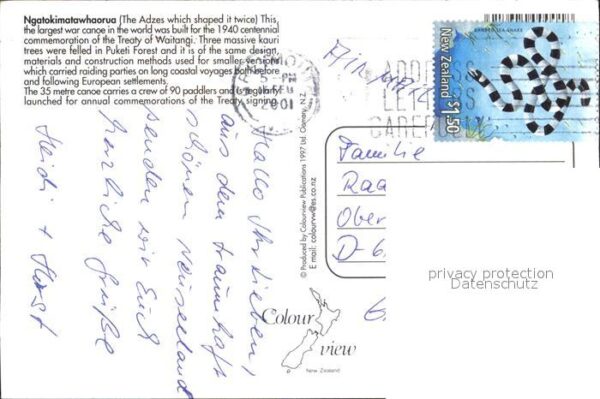 Ngatokimatawhaorua (The Adzes which shaped it twice) This,
the largest war canoe in the world was built for the 1940 centennial
commemoration of the Treaty of Waitangi. Three massive kauri
trees were felled in Puketi Forest and it is of the same design,
materials and construction methods used for smaller versions
which carried raiding parties on long coastal voyages both before
and following European settlements.
The 35 metre canoe carries a crew of 90 paddlers and is regularly
launched for annual commemorations of the Treaty signing.
Hallo Ihr Lieben!
aus dem traumhaft
schönen Neuseeland
senden wir Euch
herzliche Grüße
Heidi + Horst
© Produced by Colourview Publications 1997 Ltd. Oamaru, N.Z.
E mail: colourvw@es.co.nz
Colour
view
New Zealand
AIR MAIL
2001
ADDRESS
LETTERS
CAREFULLY
BANDED SEA-SNAKE
New Zealand
$1.50
Familie
Raa
Ober
D-6
privacy protection
Datenschutz